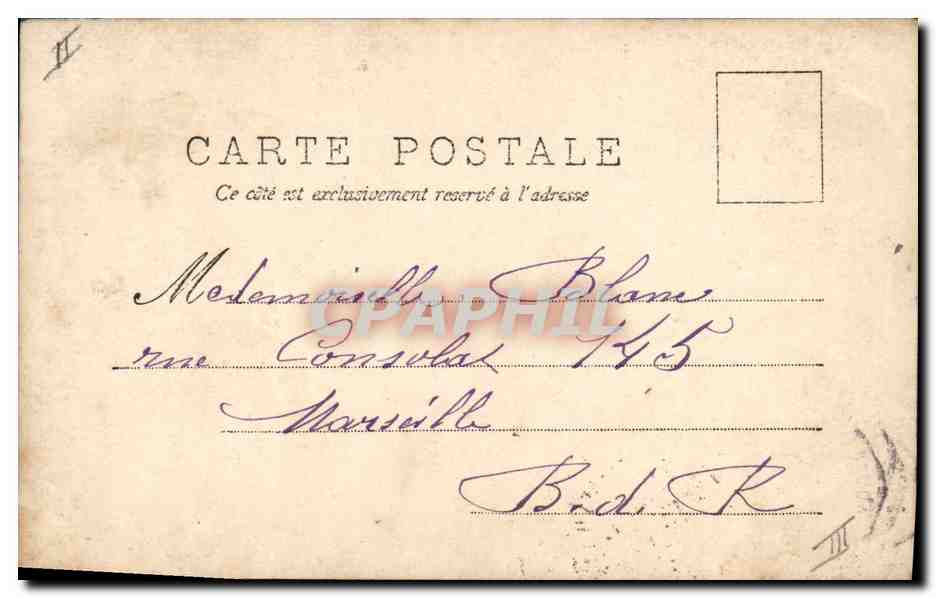 II
CARTE POSTALE
Ce côté est exclusivement reservé à l'adresse
Mademoiselle Blanc
CPAPHIL
rue Consolat 145
Marseille
B. d. R
III